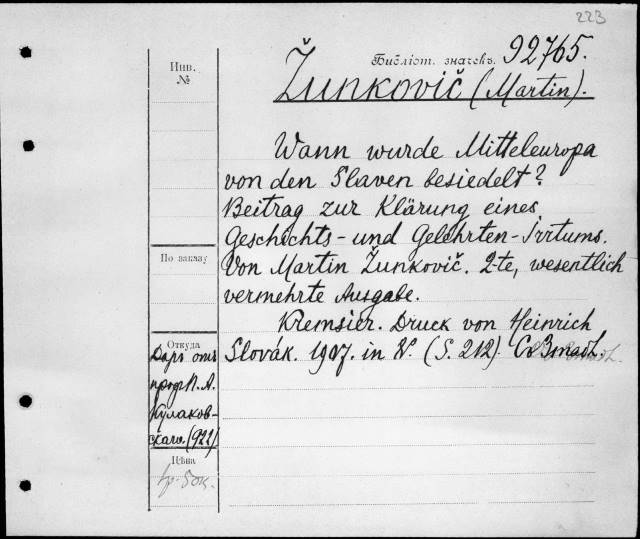 223
Библіот. значекъ. 92765.
Žunkovič (Martin).
Инв.
№
Wann wurde Mitteleuropa
von den Slaven besiedelt?
Beitrag zur Klärung eines
Geschichts- und Gelehrten-Irrtums.
Von Martin Žunkovič. 2-te, wesentlich
vermehrte Ausgabe.
Kremsier. Druck von Heinrich
Slovák. 1907. in 8°. (S. 212)
По заказу
Откуда
Даръ отъ
проф. П. А.
Кулаков-
скаго. (922)
Цѣна